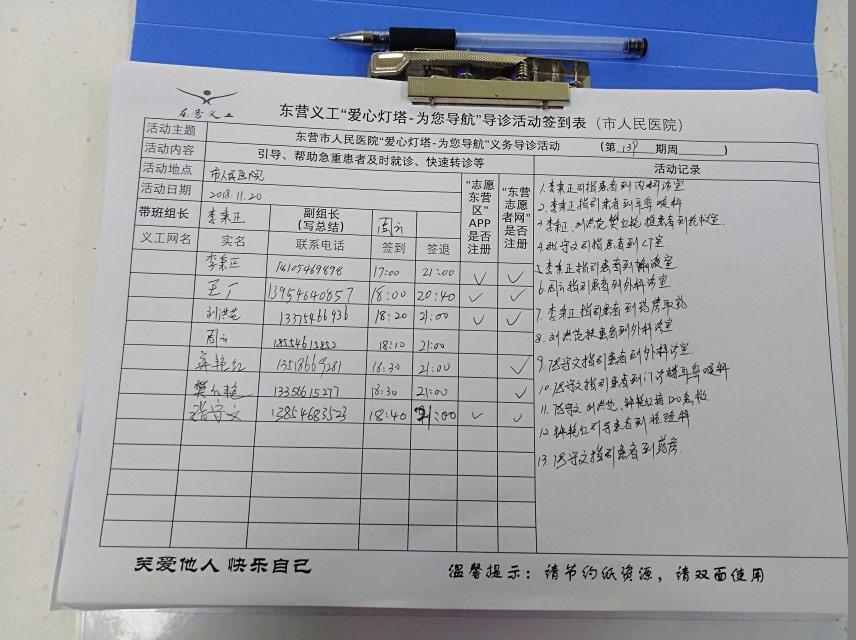 东营义工
东营义工“爱心灯塔-为您导航”导诊活动签到表（市人民医院）
活动主题 东营市人民医院“爱心灯塔-为您导航”义务导诊活动 （第139期周 ）
活动内容 引导、帮助急重患者及时就诊、快速转诊等
活动地点 市人民医院
活动日期 2018.11.20
带班组长 李秉正 副组长（写总结） 周云
“志愿东营区”APP是否注册
“东营志愿者网”是否注册
义工网名 实名 联系电话 签到 签退
李秉正 17:00 21:00 ✓ ✓
王丁 13954640857 18:00 20:40 ✓ ✓
刘洪范 18:20 21:00 ✓ ✓
周云 18554615852 18:10 21:00
钟艳红 18:30 21:00 ✓
13356615277 18:30 21:00 ✓
张守文 13854683523 18:40 21:00 ✓ ✓
活动记录
1.李秉正引指患者到内科诊室
2.李秉正指引患者到耳鼻喉科
3.李秉正、刘洪范 患者到 室
4.张守文引指患者到CT室
5.李秉正指引患者到输液室
6.周云指引患者到外科诊室
7.李秉正指引患者到药房取药
8.刘洪范扶患者到外科诊室
9.张守文指引患者到外科诊室
10.张守文指引患者到门诊楼耳鼻喉科
11.张守文、刘洪范、钟艳红 120
12.钟艳红引导患者到检验科
13.张守文指引患者到药房.
关爱他人 快乐自己
温馨提示：请节约纸资源，请双面使用